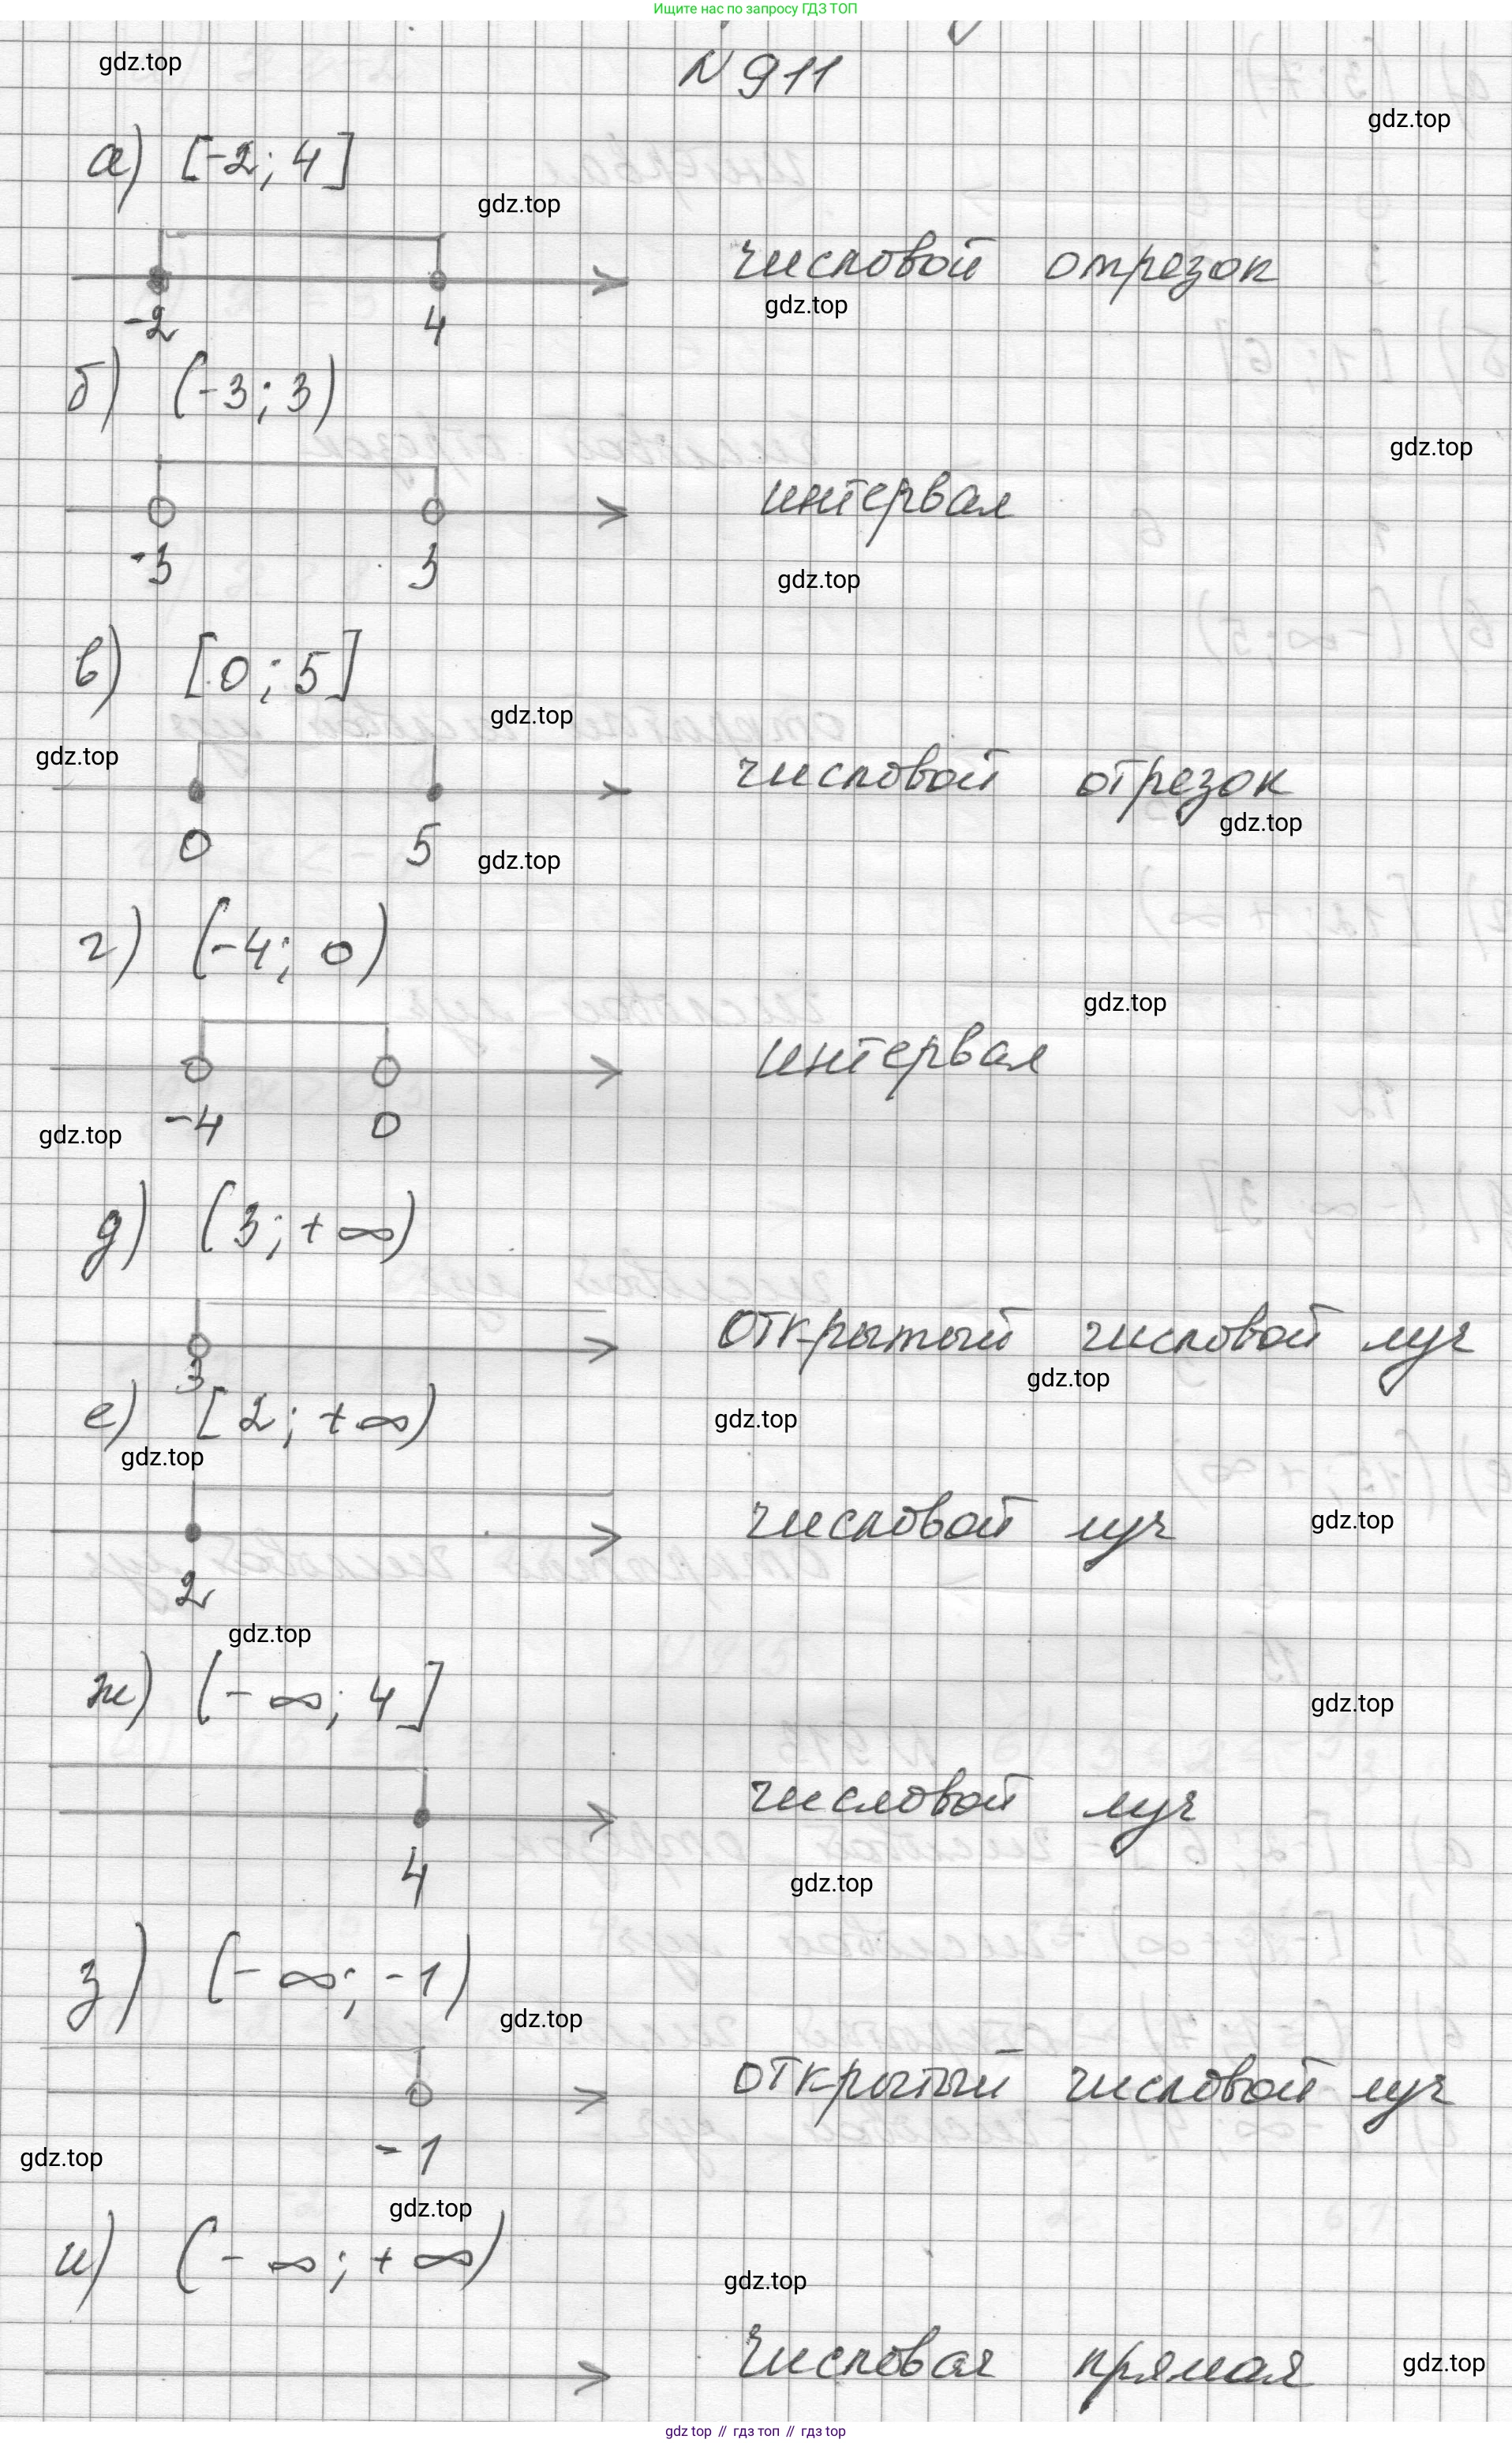 Ищите нас по запросу ГДЗ ТОП
gdz.top
N 911
gdz.top
а) [-2; 4]
gdz.top
числовой отрезок
gdz.top
-2 4
б) (-3; 3)
gdz.top
интервал
-3 3
gdz.top
в) [0; 5]
gdz.top
gdz.top
числовой отрезок
gdz.top
0 5
gdz.top
г) (-4; 0)
gdz.top
интервал
-4 0
gdz.top
д) (3; +∞)
открытый числовой луч
3
gdz.top
е) [2; +∞)
gdz.top
gdz.top
числовой луч
gdz.top
2
gdz.top
ж) (-∞; 4]
gdz.top
числовой луч
4
gdz.top
з) (-∞; -1)
gdz.top
открытый числовой луч
-1
gdz.top
gdz.top
и) (-∞; +∞)
gdz.top
числовая прямая
gdz.top
gdz top // гдз топ // гдз top